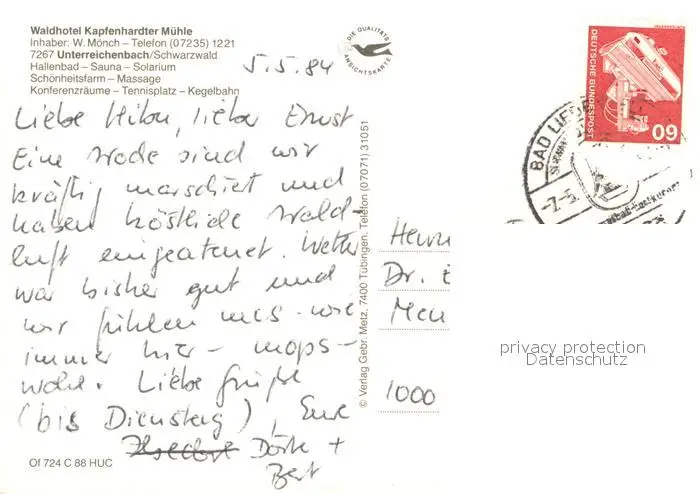 Waldhotel Kapfenhardter Mühle
Inhaber: W. Mönch – Telefon (07235) 1221
7267 Unterreichenbach/Schwarzwald
Hallenbad – Sauna – Solarium
Schönheitsfarm – Massage
Konferenzräume – Tennisplatz – Kegelbahn
5.5.84
Liebe Hilou, lieber Ernst
Eine Woche sind wir
kräftig marschiert und
haben köstliche Wald-
luft eingeatmet. Wetter
war bisher gut und
wir fühlen uns - wie
immer hier - mops-
wohl. Liebe Grüße
(bis Dienstag), Eure
Dörte +
Bert
Of 724 C 88 HUC
DIE QUALITÄTS
ANSICHTSKARTE
© Verlag Gebr. Metz, 7400 Tübingen, Telefon (07071) 31051
DEUTSCHE BUNDESPOST
60
BAD LIEBE
-7.-5.
Herrn
Dr. E
Meu
1000
privacy protection
Datenschutz